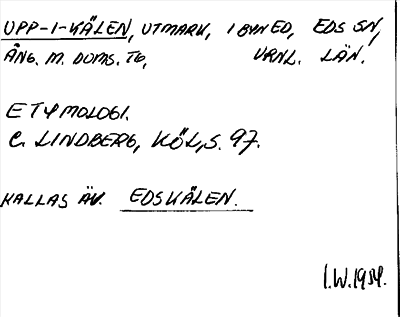 UPP-I-KÄLEN, UTMARK, I BYN ED, EDS SN,
ÅNG. M. DOMS. TG, VRNL. LÄN.
ETYMOLOGI.
C. LINDBERG, KÖL, S. 97.
KALLAS ÄV. EDSKÄLEN.
I.W. 1984.